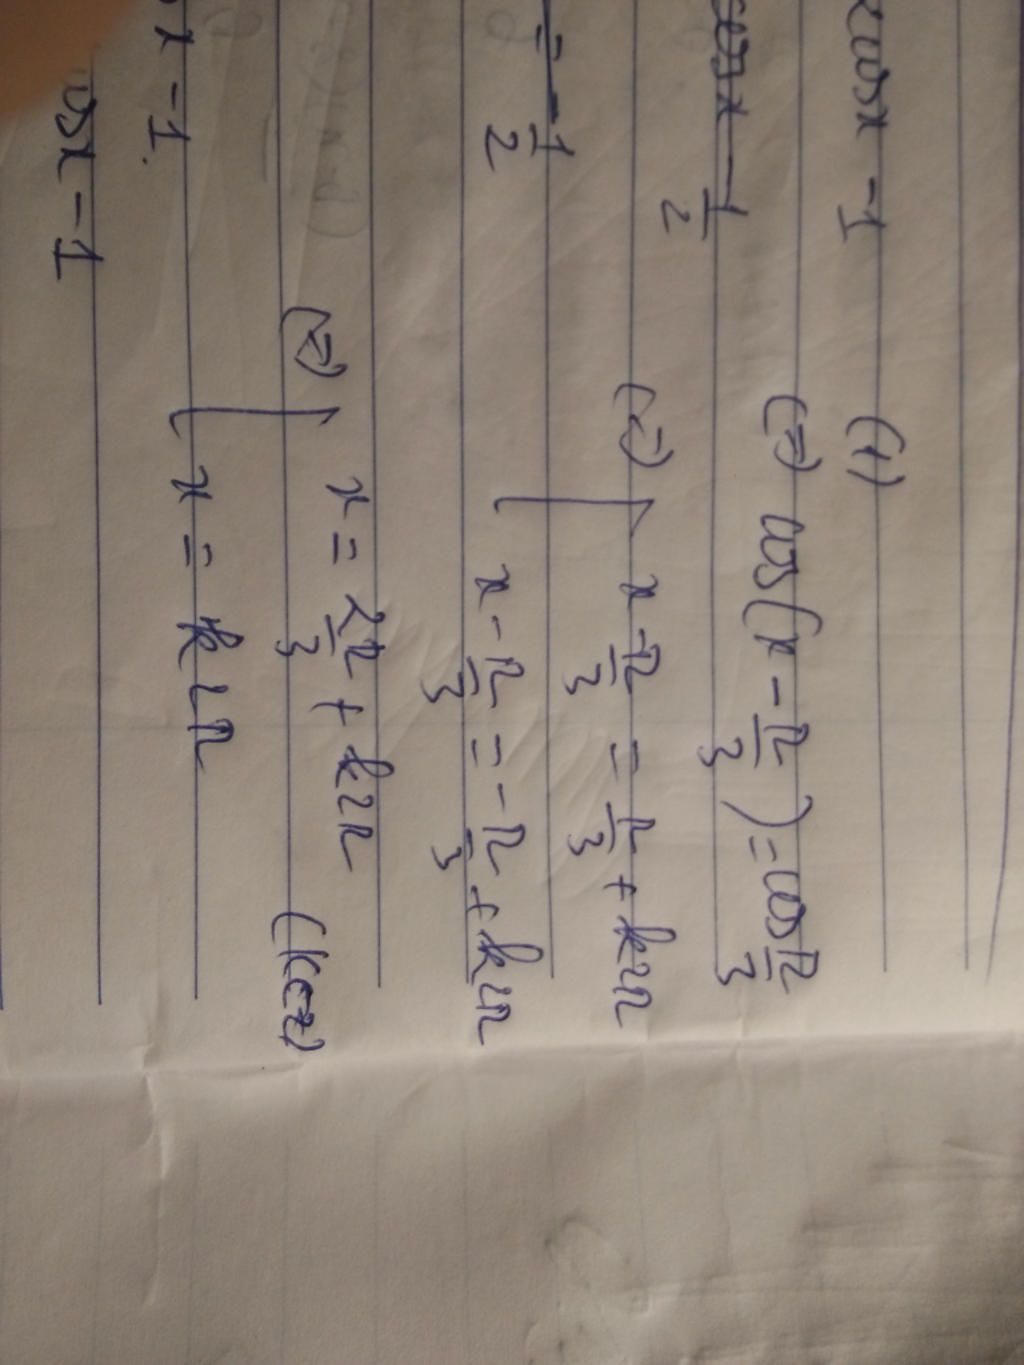 cosx - 1
(1)
cosx - 1/2
(=) cos(x - π/3) = cos π/3
= - 1/2
(=) [ x - π/3 = π/3 + k2π
x - π/3 = - π/3 + k2π
(=) [ x = 2π/3 + k2π
(k∈Z)
x = k2π
x - 1
cosx - 1